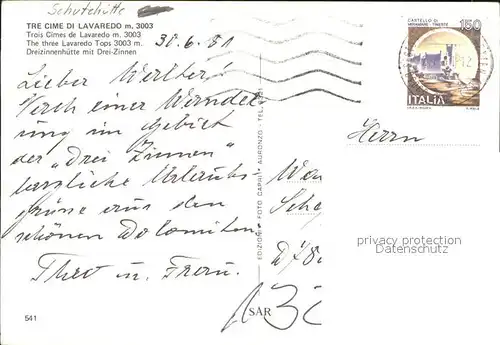 Schutzhütte
TRE CIME DI LAVAREDO m. 3003
Trois Cimes de Lavaredo m. 3003
The three Lavaredo Tops 3003 m.
Dreizinnenhütte mit Drei-Zinnen
30.6.81
CASTELLO DI
MIRAMARE - TRIESTE
150
ITALIA
Lieber Walther!
Nach einer Wander
ung im Gebiet
der "Drei Zinnen"
herzliche Urlaubs
grüße aus den
schönen Dolomiten
Theo u. Frau.
EDIZIONI - FOTO CAPRI - AURONZO
Herrn
privacy protection
Datenschutz
SAR
541